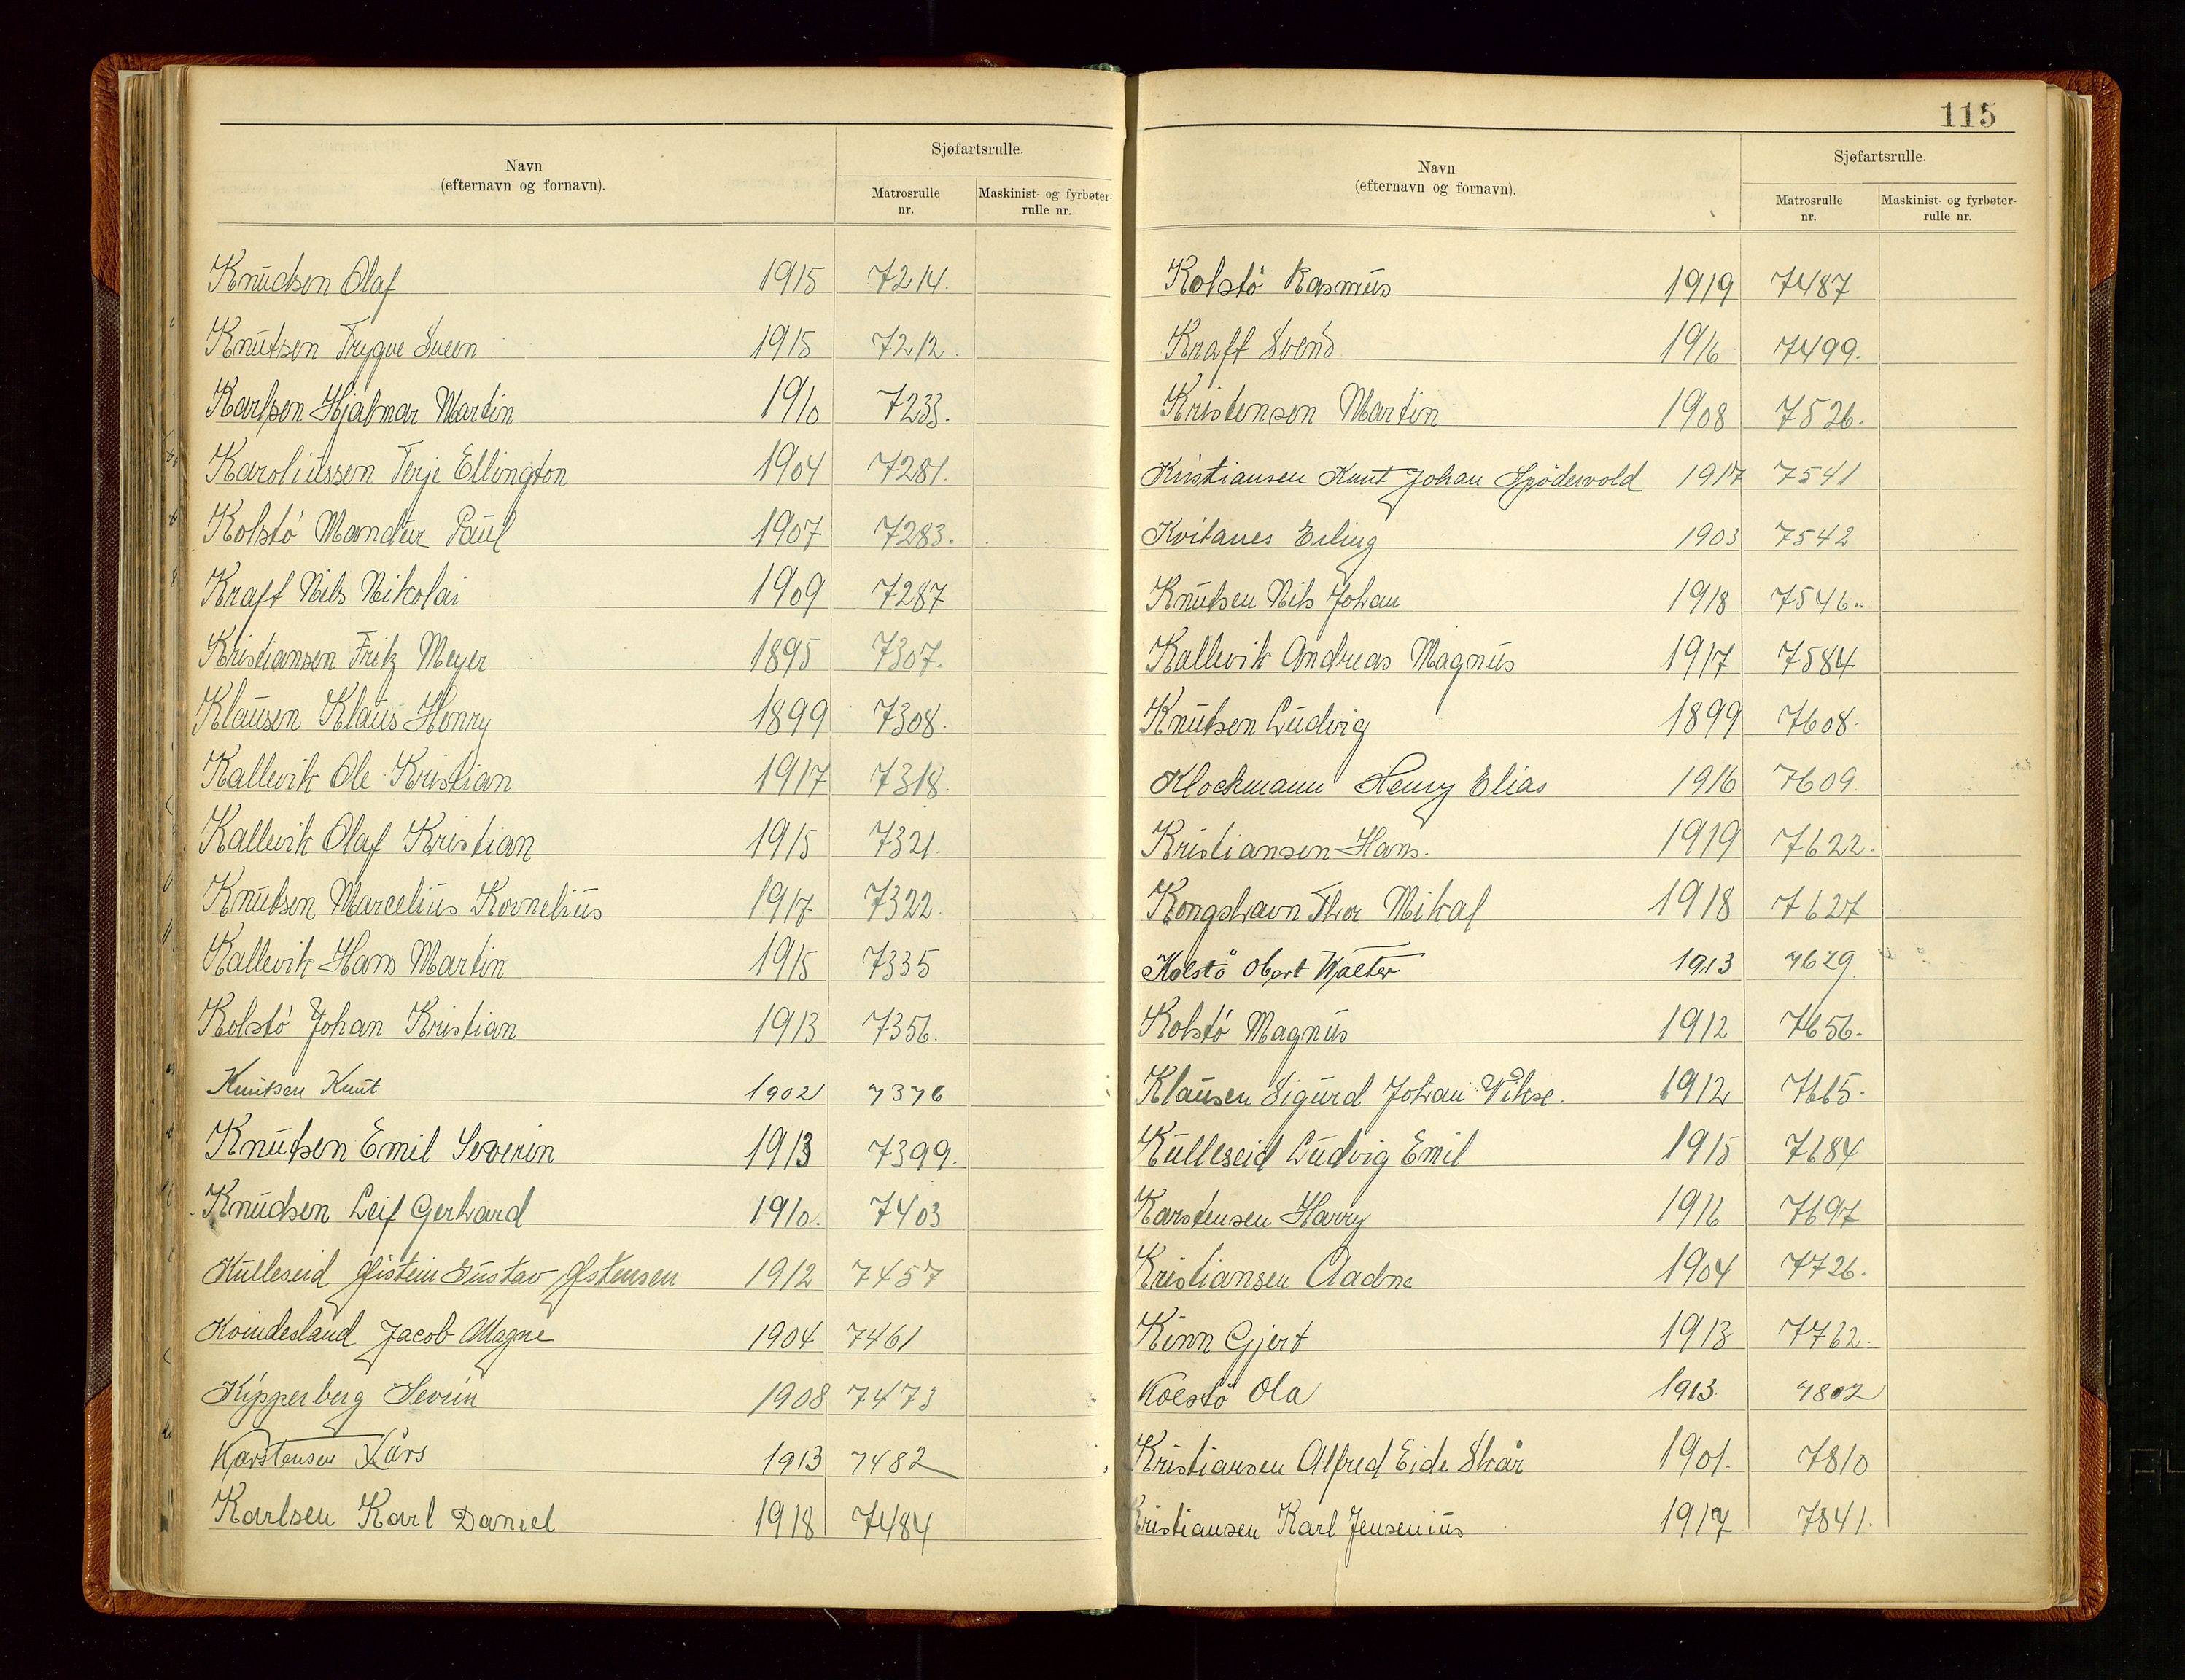 Navn
(efternavn og fornavn).
Sjøfartsrulle.
Matrosrulle nr.
Maskinist- og fyrbøter-rulle nr.
Knudsen Olaf 1915 7214.
Knutsen Trygve Sveen 1915 7212.
Karlsen Hjalmar Martin 1910 7233.
Karoliussen Terje Ellington 1904 7281.
Kolstö Mandur Paul 1907 7283.
Kraft Nils Nikolai 1909 7287
Kristiansen Fritz Meyer 1895 7307.
Klausen Klaus Henry 1899 7308.
Kallevik Ole Kristian 1917 7318.
Kallevik Olaf Kristian 1915 7321.
Knutsen Marcelius Kornelius 1917 7322.
Kallevik Hans Martin 1915 7335
Kolstö Johan Kristian 1913 7356.
Knutsen Knut 1902 7376
Knutsen Emil Severin 1913 7399.
Knudsen Leif Gerhard 1910. 7403
Kulleseid Øistein Gustav Østensen 1912 7457
Kvindesland Jacob Magne 1904 7461
Kipperberg Severin 1908 7473
Karstensen Lars 1913 7482
Karlsen Karl Daniel 1918 7484
115
Navn
(efternavn og fornavn).
Sjøfartsrulle.
Matrosrulle nr.
Maskinist- og fyrbøter-rulle nr.
Kolstö Rasmus 1919 7487
Kraft Svend 1916 7499.
Kristensen Martin 1908 7526.
Kristiansen Knut Johan Spödervold 1917 7541
Kvitanes Erling 1903 7542
Knutsen Nils Johan 1918 7546..
Kallevik Andreas Magnus 1917 7584
Knutsen Ludvig 1899 7608.
Klockmann Henry Elias 1916 7609.
Kristiansen Hans. 1919 7622.
Kongshavn Thor Mikal 1918 7627
Kolstö Obert Walter 1913 7629
Kolstö Magnus 1912 7656.
Klausen Sigurd Johan Vikse. 1912 7665.
Kulleseid Ludvig Emil 1915 7684
Karstensen Harry 1916 7697
Kristiansen Aadne 1904 7726.
Kinn Gjert 1913 7762.
Kolstö Ola 1913 7802
Kristiansen Alfred Eide Skår 1901. 7810
Kristiansen Karl Jensenius 1917 7841.